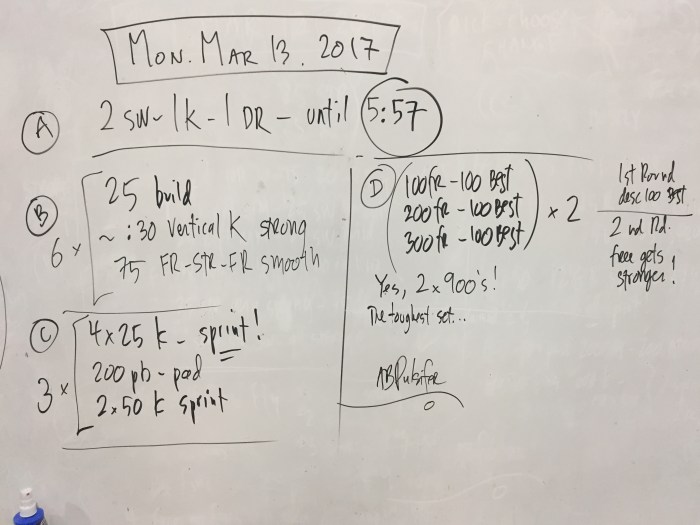 MON. MAR 13. 2017
A 2 SW - 1K - 1 DR - until 5:57
B 6 x
25 build
~ :30 Vertical K strong
75 FR-STR-FR smooth
C 3 x
4x25 K - sprint!
200 pb - pad
2x50 K sprint
D
100 fr - 100 Best
200 fr - 100 Best
300 fr - 100 Best
x 2
1st Round
desc 100 Best
2nd Rd.
free gets
stronger!
Yes, 2 x 900's!
The toughest set...